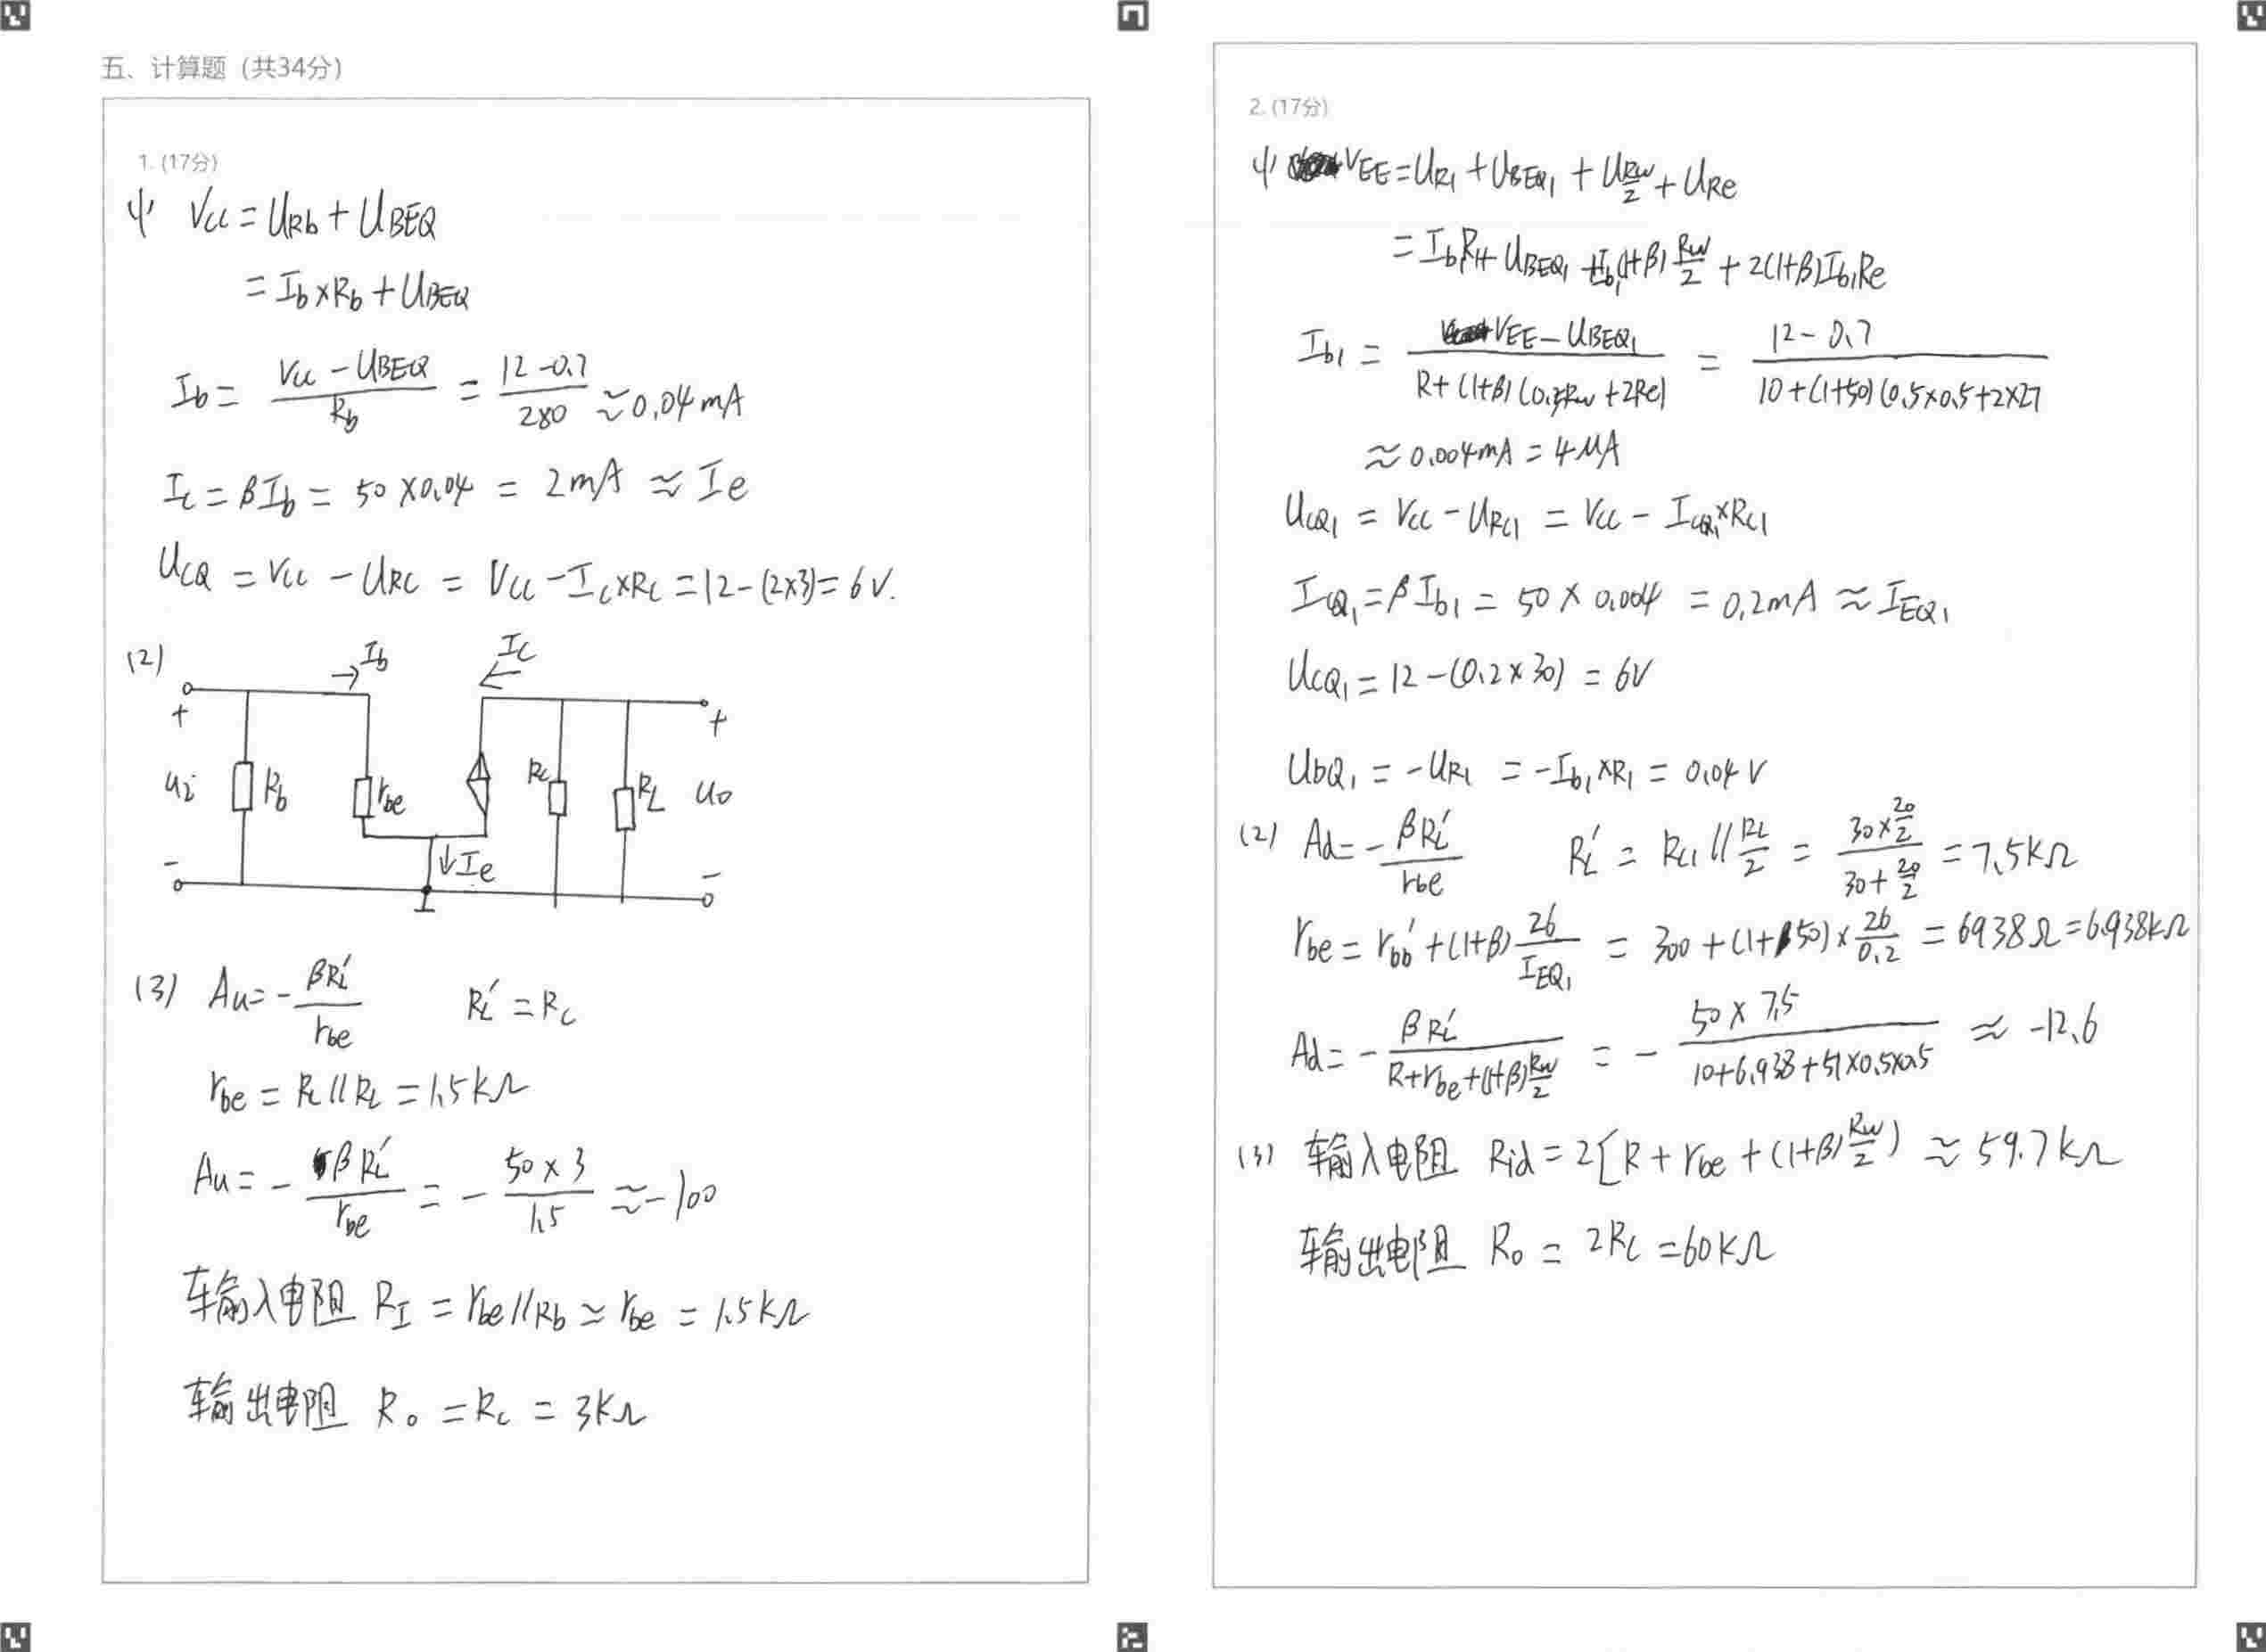 五、计算题 (共34分)
1. (17分)
(1) Vcc = URb + UBEQ
= Ib×Rb + UBEQ
Ib = (Vcc - UBEQ)/Rb = (12-0.7)/280 ≈ 0.04mA
Ic = βIb = 50×0.04 = 2mA ≈ Ie
UCQ = Vcc - URC = Vcc - Ic×Rc = 12-(2×3) = 6V.
(2)
Ib
Ic
+
+
ui
Rb
rbe
Rc
RL
uo
-
Ie
-
(3) Au = -βRL'/rbe RL' = Rc
rbe = Rc//RL = 1.5kΩ
Au = -βRL'/rbe = -(50×3)/1.5 ≈ -100
输入电阻 RI = rbe//Rb ≃ rbe = 1.5kΩ
输出电阻 Ro = Rc = 3kΩ
2. (17分)
(1) VEE = UR1 + UBEQ1 + URw/2 + URe
= Ib1R1 + UBEQ1 + Ib1(1+β)Rw/2 + 2(1+β)Ib1Re
Ib1 = (VEE - UBEQ1)/(R+(1+β)(0.5Rw+2Re)) = (12-0.7)/(10+(1+50)(0.5×0.5+2×27
≈ 0.004mA = 4μA
UCQ1 = Vcc - URC1 = Vcc - ICQ1×RC1
ICQ1 = βIb1 = 50×0.004 = 0.2mA ≈ IEQ1
UCQ1 = 12-(0.2×30) = 6V
UbQ1 = -UR1 = -Ib1×R1 = 0.04V
(2) Ad = -βRL'/rbe RL' = Rc1//RL/2 = (30×20/2)/(30+20/2) = 7.5kΩ
rbe = rbb' + (1+β)26/IEQ1 = 300+(1+50)×26/0.2 = 6938Ω = 6.938kΩ
Ad = -βRL'/(R+rbe+(1+β)Rw/2) = -(50×7.5)/(10+6.938+51×0.5×0.5) ≈ -12.6
(3) 输入电阻 Rid = 2[R+rbe+(1+β)Rw/2) ≈ 59.7kΩ
输出电阻 Ro = 2Rc = 60kΩ